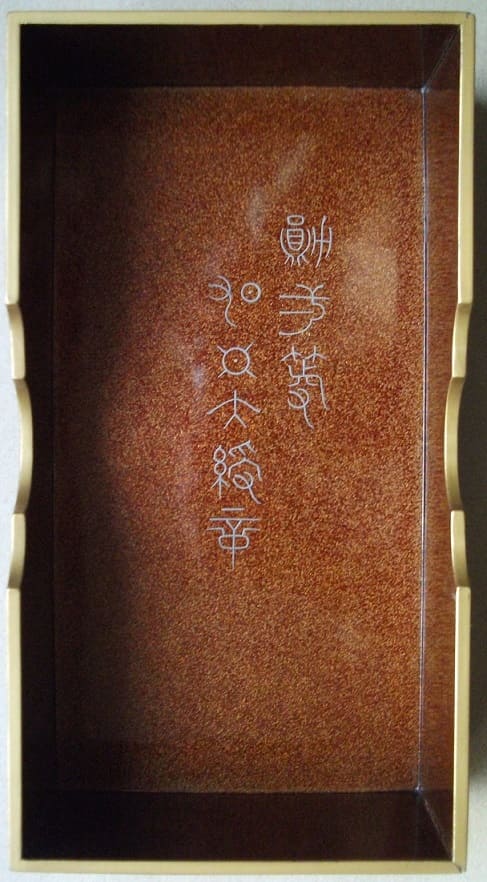 勲一等
旭日大綬章